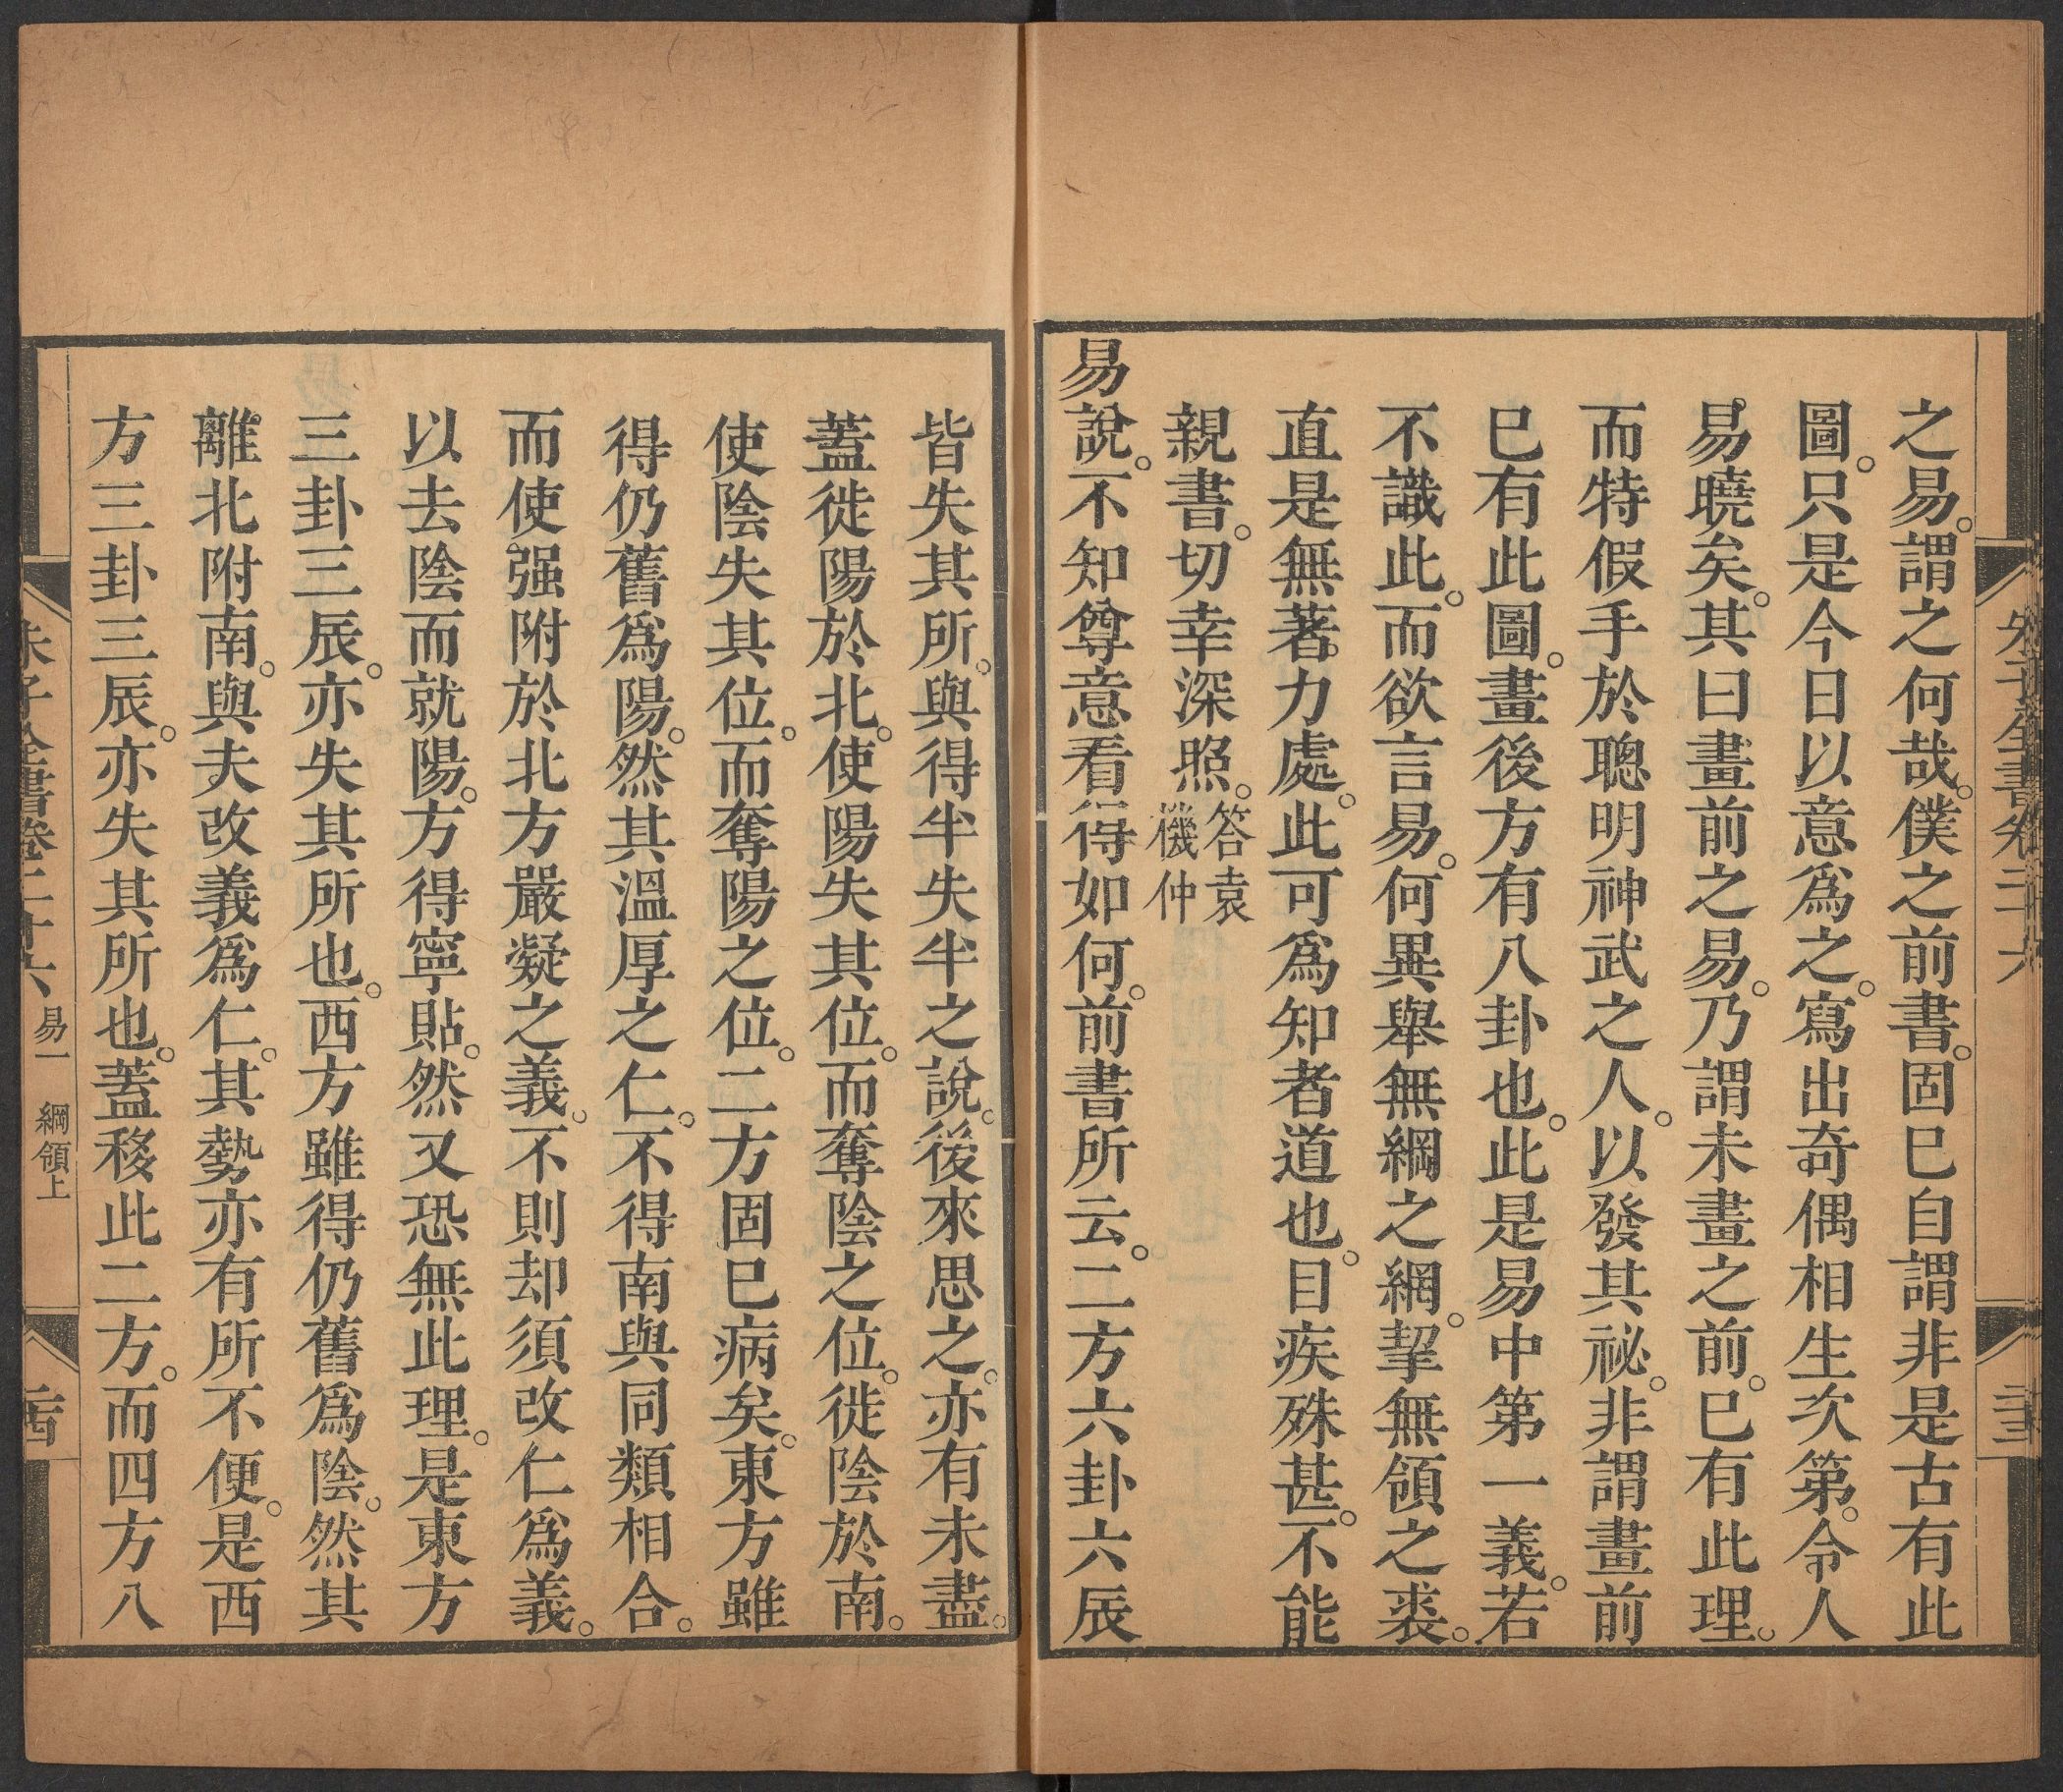 之易。謂之何哉。僕之前書。固已自謂非是古有此
圖。只是今日以意爲之。寫出奇偶相生次第。令人
易曉矣。其曰畫前之易。乃謂未畫之前。已有此理。
而特假手於聰明神武之人。以發其祕。非謂畫前
已有此圖。畫後方有八卦也。此是易中第一義。若
不識此。而欲言易。何異舉無綱之網。挈無領之裘。
直是無著力處。此可爲知者道也。目疾殊甚。不能
親書。切幸深照。答袁
機仲
易說。不知尊意看得如何。前書所云。二方六卦六辰
皆失其所。與得半失半之說。後來思之。亦有未盡。
蓋徙陽於北。使陽失其位。而奪陰之位。徙陰於南。
使陰失其位。而奪陽之位。二方固已病矣。東方雖
得仍舊爲陽。然其溫厚之仁。不得南與同類相合。
而使强附於北方嚴凝之義。不則却須改仁爲義。
以去陰而就陽。方得寧貼。然又恐無此理。是東方
三卦三辰。亦失其所也。西方雖得仍舊爲陰。然其
離北附南。與夫改義爲仁。其勢亦有所不便。是西
方三卦三辰。亦失其所也。蓋移此二方。而四方八
朱子全書卷二十六 易一 綱領上